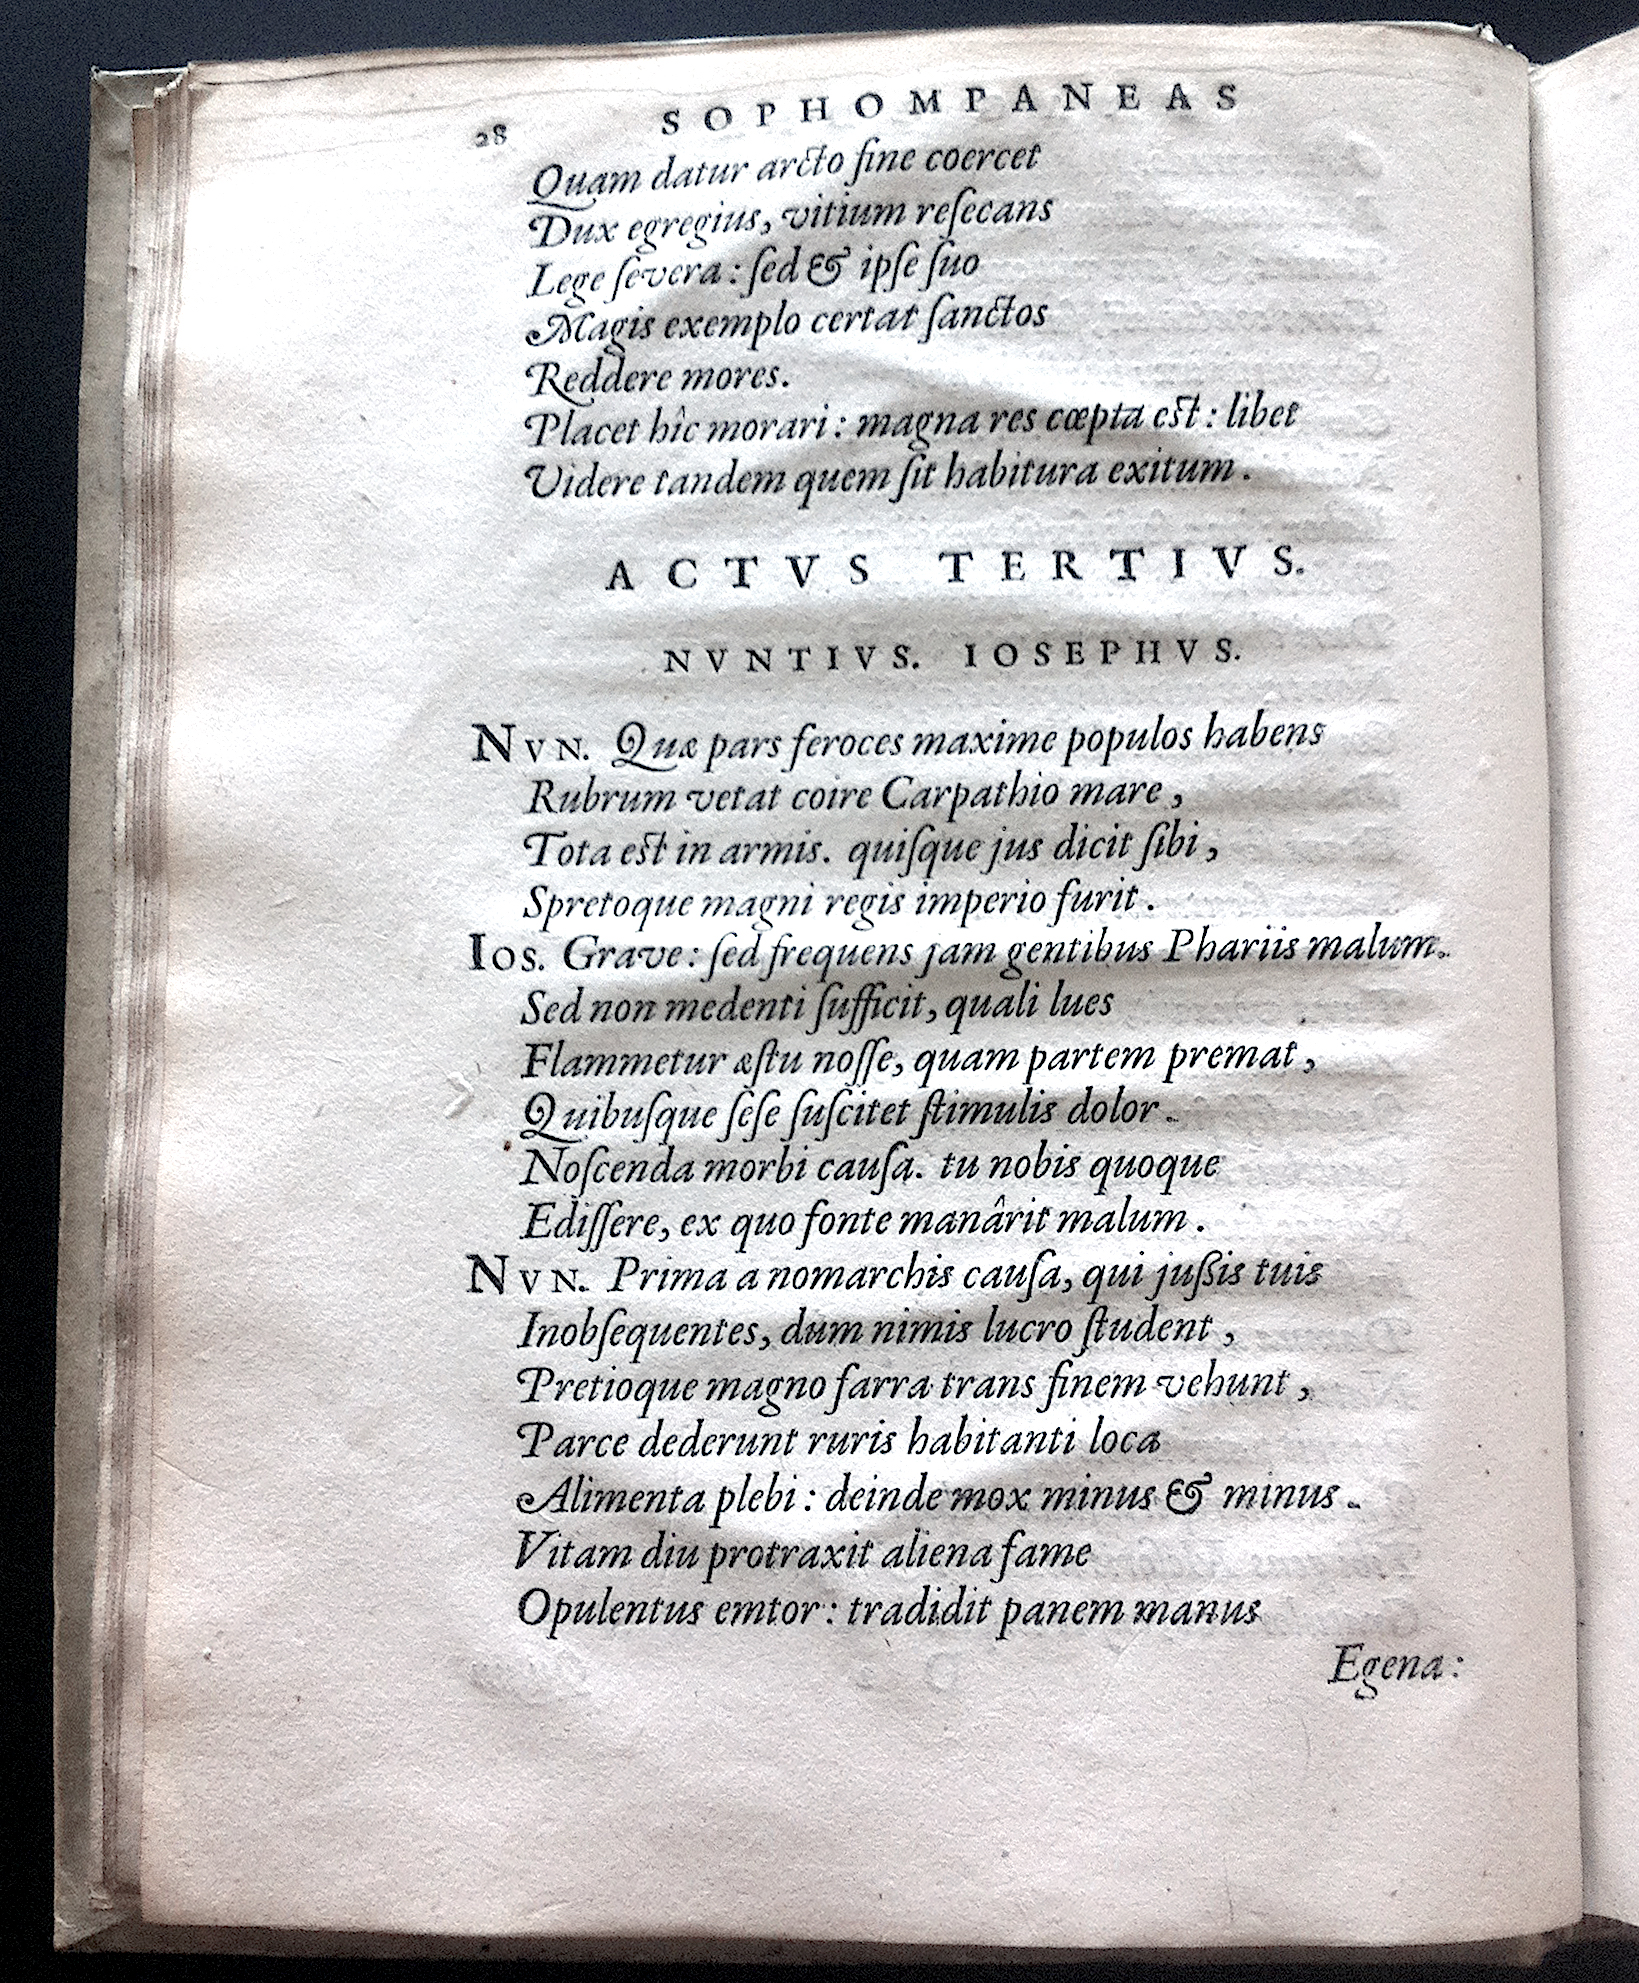 28 SOPHOMPANEAS
Quam datur arcto fine coercet
Dux egregius, vitium reſecans
Lege ſevera : ſed & ipſe ſuo
Magis exemplo certat ſanctos
Reddere mores.
Placet hîc morari : magna res cœpta est : libet
Videre tandem quem ſit habitura exitum.
ACTVS TERTIVS.
NVNTIVS. IOSEPHVS.
NVN. Quæ pars feroces maxime populos habens
Rubrum vetat coire Carpathio mare,
Tota est in armis. quiſque jus dicit ſibi,
Spretoque magni regis imperio furit.
IOS. Grave : ſed frequens jam gentibus Phariis malum.
Sed non medenti ſufficit, quali lues
Flammetur æſtu noſſe, quam partem premat,
Quibuſque ſeſe ſuſcitet ſtimulis dolor.
Noſcenda morbi cauſa. tu nobis quoque
Ediſſere, ex quo fonte manârit malum.
NVN. Prima a nomarchis cauſa, qui juſsis tuis
Inobſequentes, dum nimis lucro ſtudent,
Pretioque magno farra trans finem vehunt,
Parce dederunt ruris habitanti loca
Alimenta plebi : deinde mox minus & minus.
Vitam diu protraxit aliena fame
Opulentus emtor : tradidit panem manus
Egena :